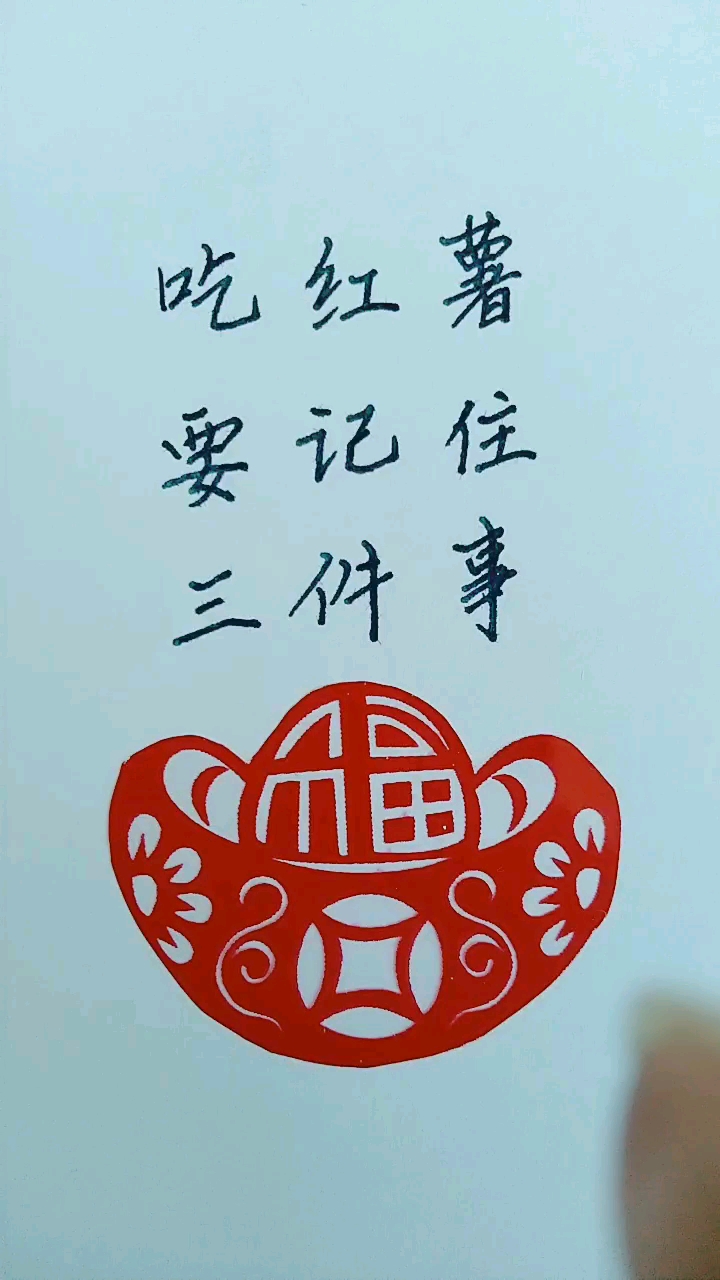 吃红薯
要记住
三件事
福